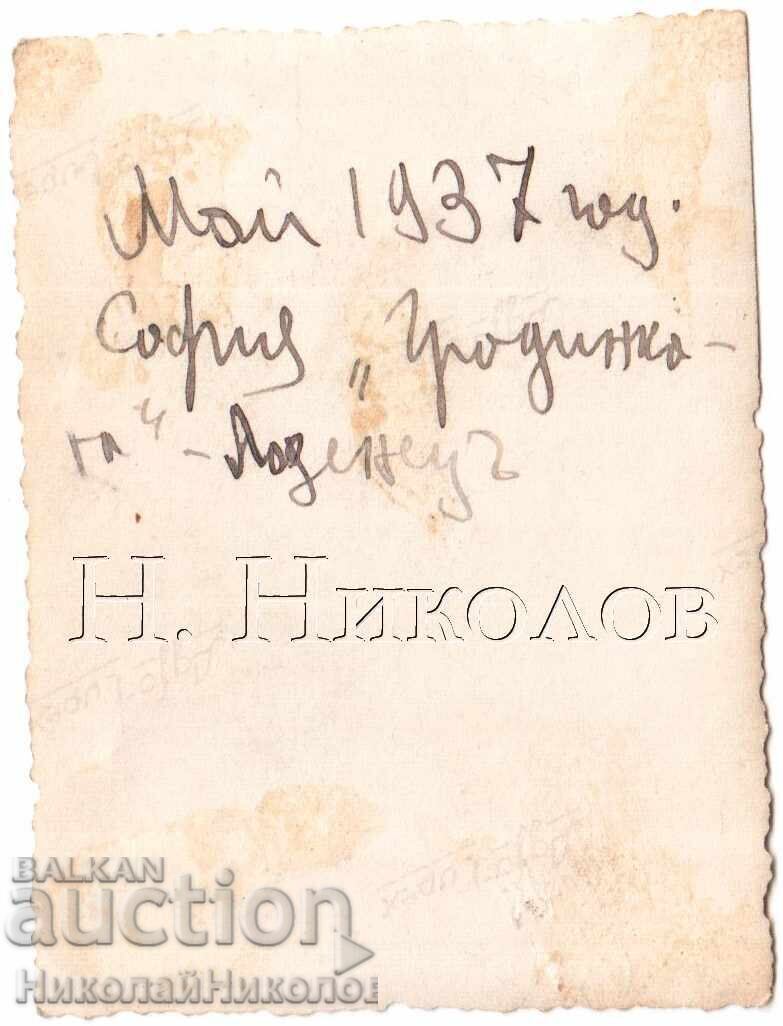 Май 1937 год.
София „Градинка-
та“ - Лозенецъ
Н. Николов
BALKAN
auction
НиколайНиколов